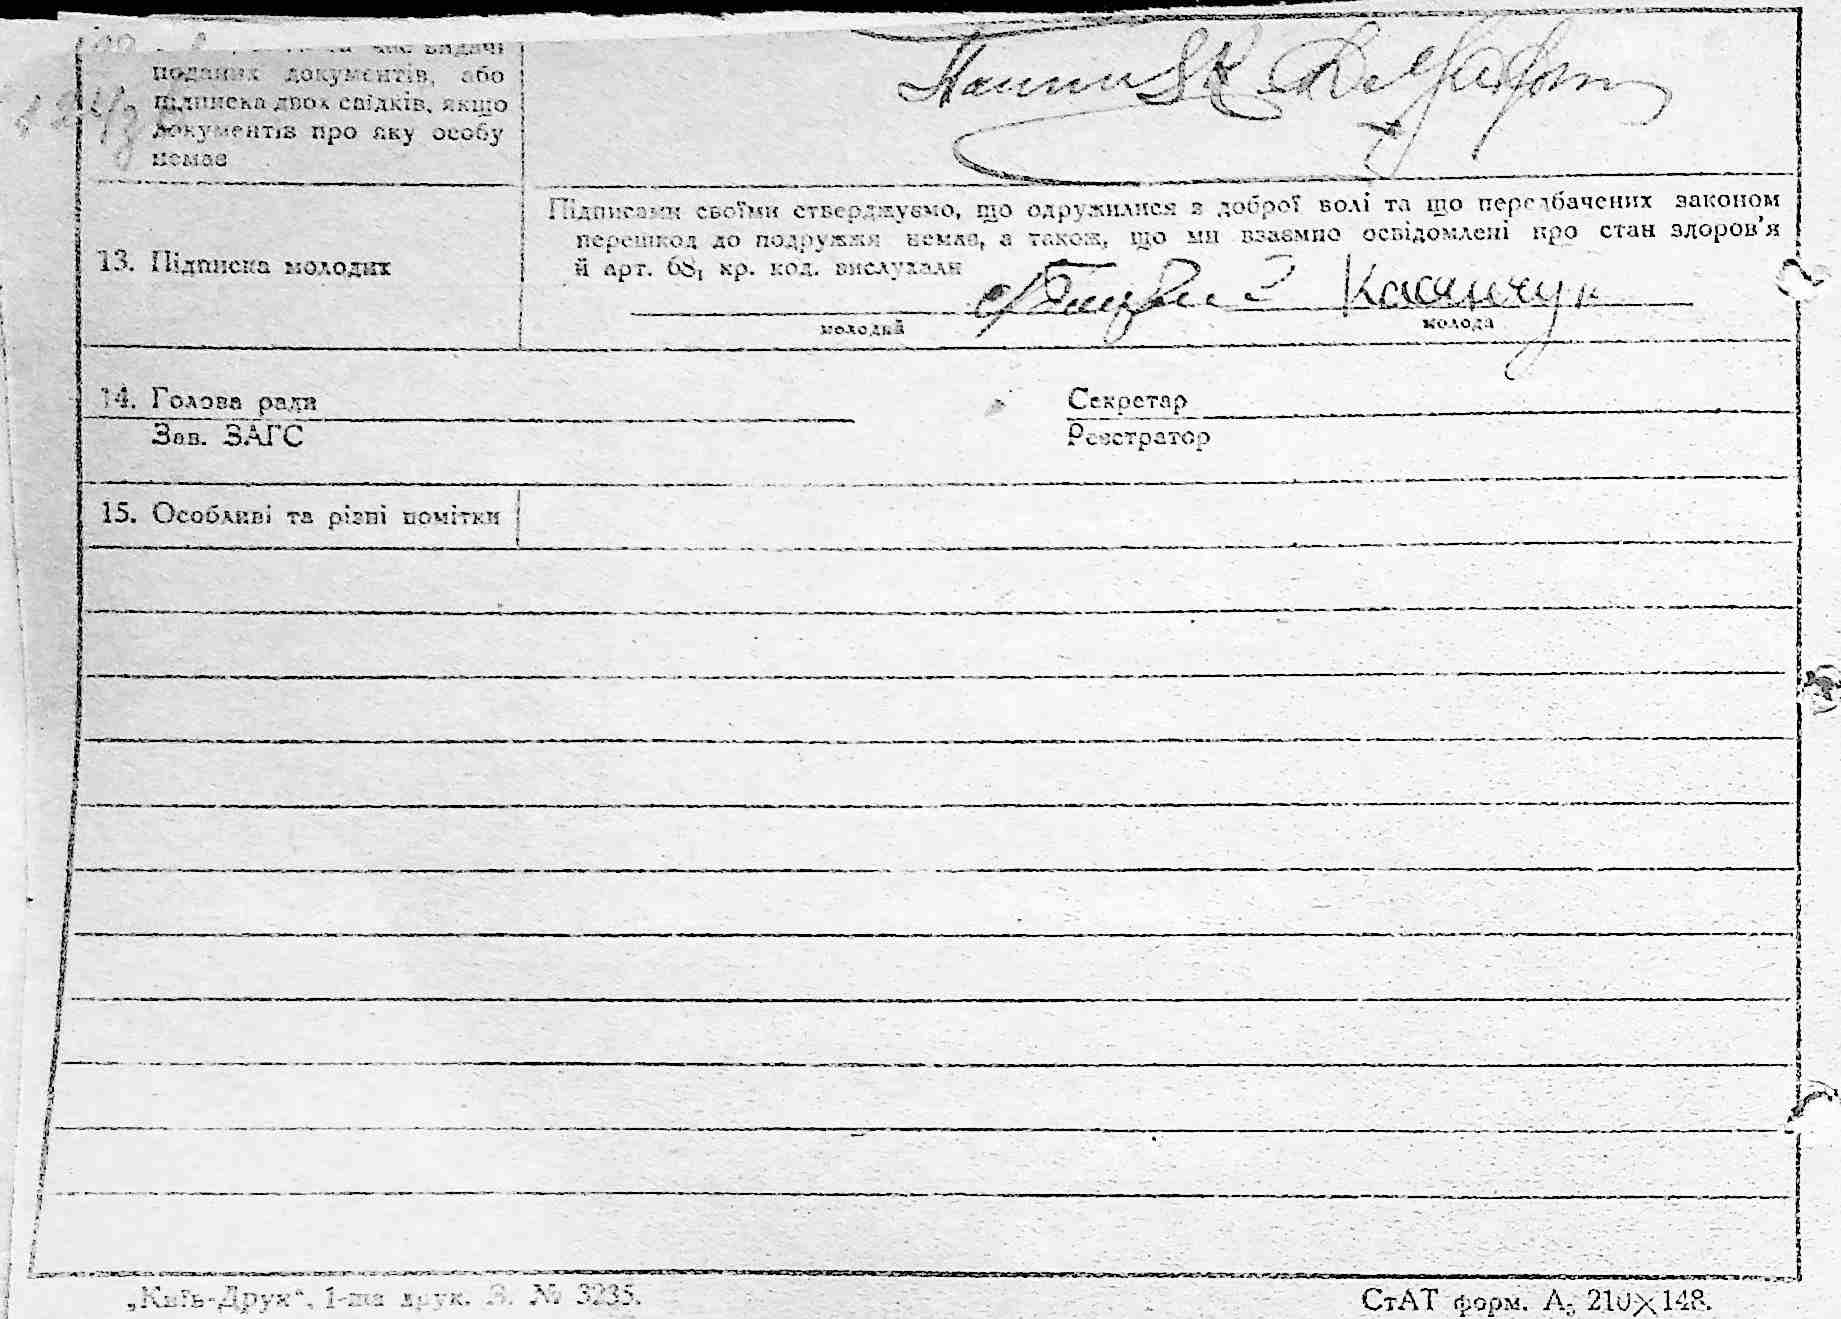 видачі
поданих документів, або
підписка двох свідків, якщо
документів про яку особу
немає
13. Підписка молодих
Підписами своїми стверджуємо, що одружилися з доброї волі та що передбачених законом
перешкод до подружжя немає, а також, що ми взаємно освідомлені про стан здоров'я
й арт. 68₁ кр. код. вислухали
Касянчук
молодий молода
14. Голова ради Секретар
Зав. ЗАГС Реєстратор
15. Особливі та різні помітки
„Київ-Друк“, 1-ша друк. З. № 3235. СтАТ форм. А₅ 210×148.